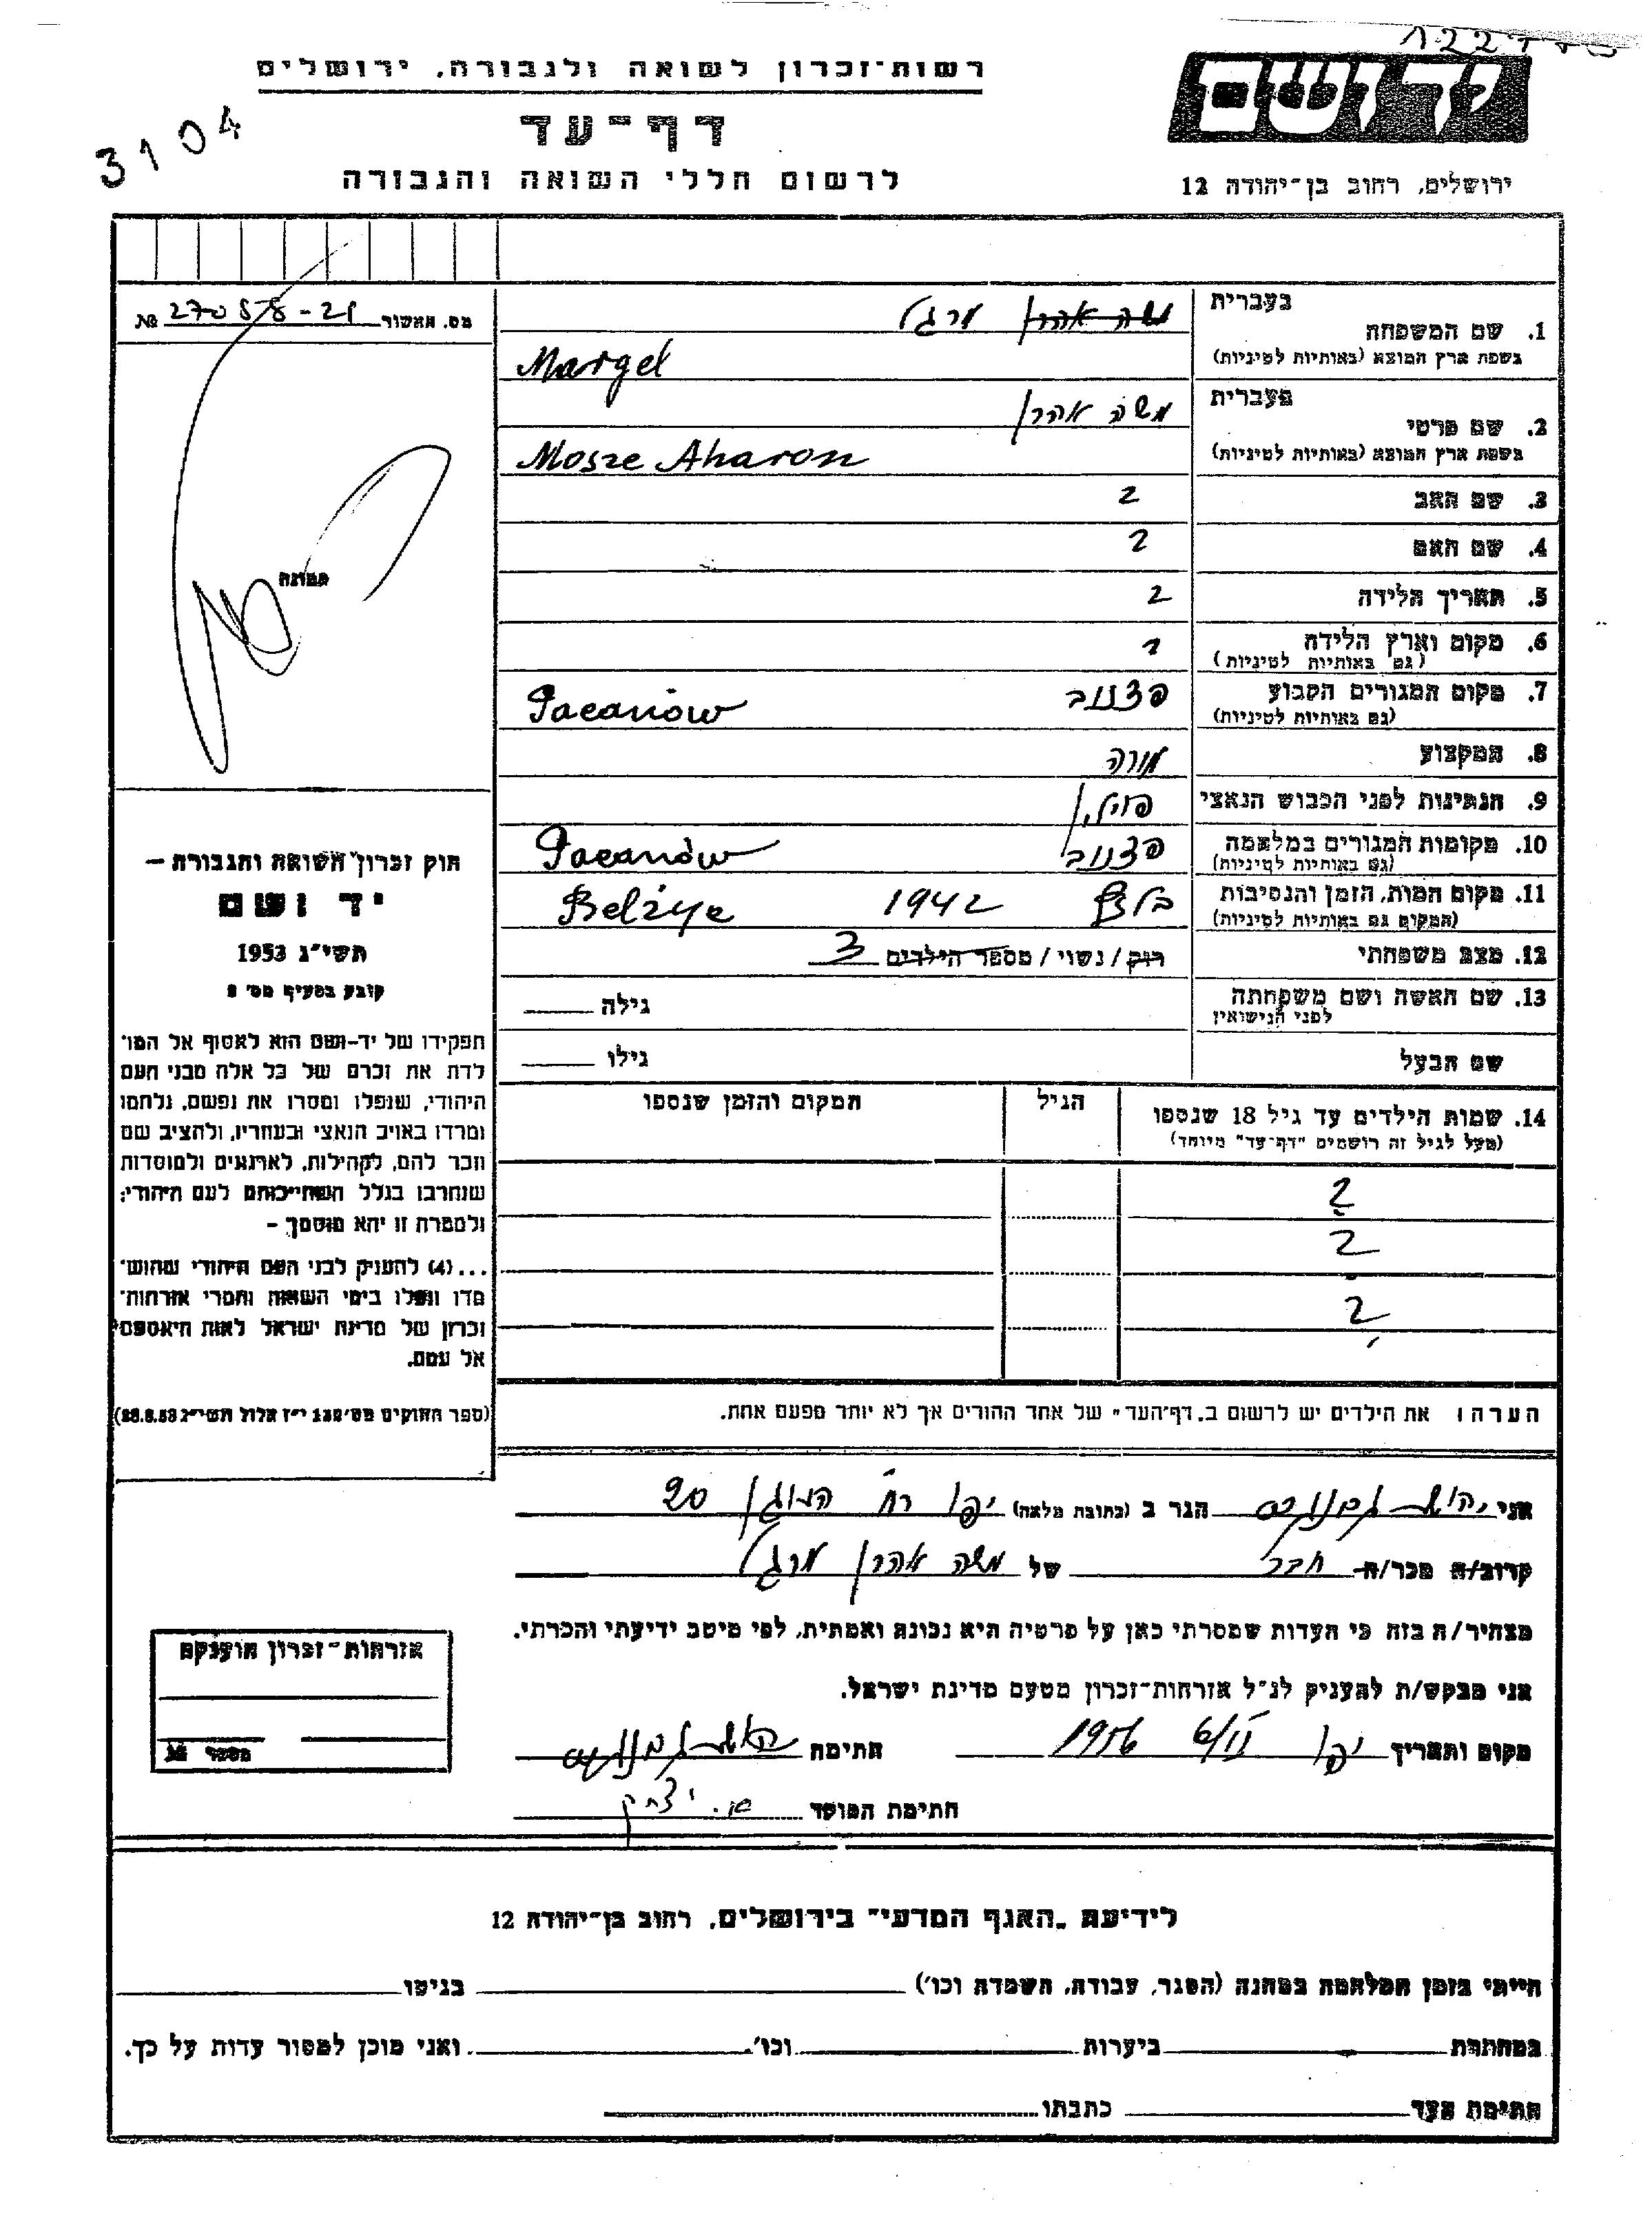 רשות־זכרון לשואה ולגבורה, ירושלים
דף־עד
לרשום חללי השואה והגבורה
3104
יד ושם
ירושלים, רחוב בן־יהודה 12
מס. האשור 27058-21 №
תמונה
1. שם המשפחה
בעברית
משה אהרן מרגל
בשפת ארץ המוצא (באותיות לטיניות)
Margel
2. שם פרטי
בעברית
משה אהרן
בשפת ארץ המוצא (באותיות לטיניות)
Mosze Aharon
3. שם האב ?
4. שם האם ?
5. תאריך הלידה ?
6. מקום וארץ הלידה ?
(גם באותיות לטיניות)
7. מקום המגורים הקבוע פצנוב Pacanów
(גם באותיות לטיניות)
8. המקצוע מורה
9. הנתינות לפני הכבוש הנאצי פולין
10. מקומות המגורים במלחמה פצנוב Pacanów
(גם באותיות לטיניות)
11. מקום המות, הזמן והנסיבות 1942
(המקום גם באותיות לטיניות)
12. מצב משפחתי רוק / נשוי / מספר הילדים 3
13. שם האשה ושם משפחתה גילה
לפני הנישואין
שם הבעל גילו
14. שמות הילדים עד גיל 18 שנספו הגיל המקום והזמן שנספו
(מעל לגיל זה רושמים "דף־עד" מיוחד)
?
?
?
הערה: את הילדים יש לרשום ב"דף־העד" של אחד ההורים אך לא יותר מפעם אחת.
חוק זכרון השואה והגבורה –
יד ושם
תשי"ג 1953
קובע בסעיף מס' 2
תפקידו של יד־ושם הוא לאסוף אל המו־
לדת את זכרם של כל אלה מבני העם
היהודי, שנפלו ומסרו את נפשם, נלחמו
ומרדו באויב הנאצי ובעוזריו, ולהציב שם
וזכר להם, לקהילות, לארגונים ולמוסדות
שנחרבו בגלל השתייכותם לעם היהודי;
ולמטרה זו יהא מוסמך –
...(4) להעניק לבני העם היהודי שהוש־
מדו ונפלו בימי השואה והמרי אזרחות־
זכרון של מדינת ישראל לאות היאספם
אל עמם.
(ספר החוקים מס' 132 י"ז אלול תשי"ג 28.8.53)
אני הגר ב (כתובת מלאה) יפו רח' 20
קרוב/ה מכר/ה חבר של משה אהרן מרגל
מצהיר/ה בזה כי העדות שמסרתי כאן על פרטיה היא נכונה ואמתית, לפי מיטב ידיעתי והכרתי.
אני מבקש/ת להעניק לנ"ל אזרחות־זכרון מטעם מדינת ישראל.
מקום ותאריך יפו 6/II 1956 חתימה
חתימת המוסד
אזרחות־זכרון הוענקה
מספר №
לידיעת "האגף המדעי" בירושלים, רחוב בן־יהודה 12
הייתי בזמן המלחמה במחנה (הסגר, עבודה, השמדה וכו') בגיטו
במחתרת ביערות וכו'. ואני מוכן למסור עדות על כך.
חתימת העד כתבתו